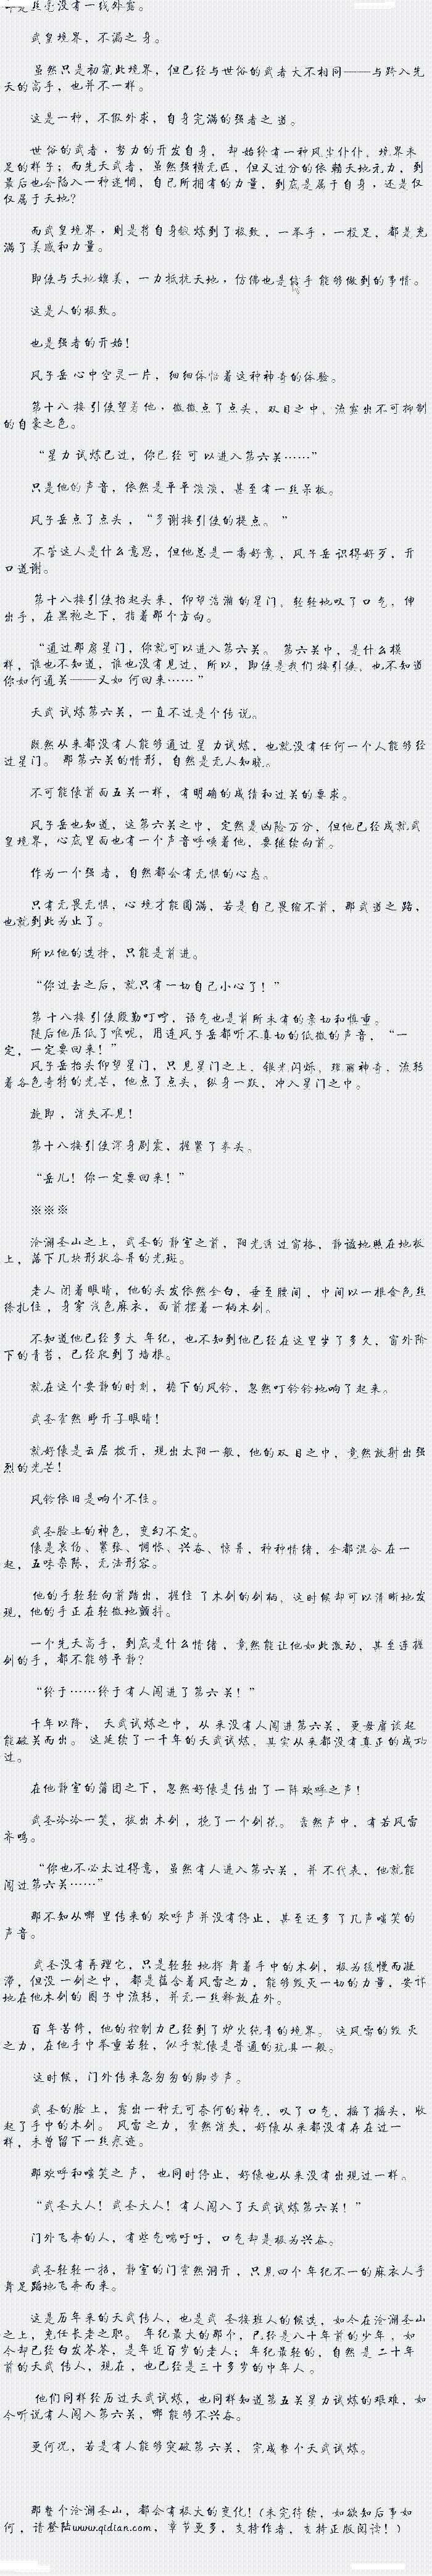 武皇境界，不漏之身。
虽然只是初窥此境界，但已经与世俗的武者大不相同——与踏入先
天的高手，也并不一样。
这是一种，不假外求，自身完满的强者之道。
世俗的武者，努力的开发自身，却始终有一种风尘仆仆、境界未
足的样子；而先天武者，虽然强横无匹，但又过分的依赖天地元力，到
最后也会陷入一种迷惘，自己所拥有的力量，到底是属于自身，还是仅
仅属于天地？
而武皇境界，则是将自身锻炼到了极致，一举手，一投足，都是充
满了美感和力量。
即使与天地媲美，一力抵抗天地，仿佛也是信手能够做到的事情。
这是人的极致。
也是强者的开始！
风子岳心中空灵一片，细细体悟着这种神奇的体验。
第十八接引使望着他，微微点了点头，双目之中，流露出不可抑制
的自豪之色。
“星力试炼已过，你已经可以进入第六关……”
只是他的声音，依然是平平淡淡，甚至有一丝呆板。
风子岳点了点头，“多谢接引使的提点。”
不管这人是什么意思，但他总是一番好意，风子岳识得好歹，开
口道谢。
第十八接引使抬起头来，仰望浩瀚的星门，轻轻地叹了口气，伸
出手，在黑袍之下，指着那个方向。
“通过那扇星门，你就可以进入第六关。第六关中，是什么模
样，谁也不知道，谁也没有见过，所以，即使是我们接引使，也不知道
你如何通关——又如何回来……”
天武试炼第六关，一直不过是个传说。
既然从来都没有人能够通过星力试炼，也就没有任何一个人能够经
过星门。那第六关的情形，自然是无人知晓。
不可能像前面五关一样，有明确的成绩和过关的要求。
风子岳也知道，这第六关之中，定然是凶险万分，但他已经成就武
皇境界，心底里面也有一个声音呼唤着他，要继续向前。
作为一个强者，自然都会有无惧的心态。
只有无畏无惧，心境才能圆满，若是自己畏缩不前，那武道之路，
也就到此为止了。
所以他的选择，只能是前进。
“你过去之后，就只有一切自己小心了！”
第十八接引使殷勤叮咛，语气也是前所未有的亲切和慎重。
随后他压低了喉咙，用连风子岳都听不真切的低微的声音，“一
定，一定要回来！”
风子岳抬头仰望星门，只见星门之上，银光闪烁、瑰丽神奇，流转
着各色奇特的光芒，他点了点头，纵身一跃，冲入星门之中。
旋即，消失不见！
第十八接引使浑身剧震，握紧了拳头。
“岳儿！你一定要回来！”
※※※
沧澜圣山之上，武圣的静室之前，阳光透过窗格，静谧地照在地板
上，落下几块形状各异的光斑。
老人闭着眼睛，他的头发依然全白，垂至腰间，中间以一根金色丝
绦扎住，身穿浅色麻衣，面前摆着一柄木剑。
不知道他已经多大年纪，也不知到他已经在这里坐了多久，窗外阶
下的青苔，已经爬到了墙根。
就在这个安静的时刻，檐下的风铃，忽然叮铃铃地响了起来。
武圣霍然睁开了眼睛！
就好像是云层拨开，现出太阳一般，他的双目之中，竟然放射出强
烈的光芒！
风铃依旧是响个不住。
武圣脸上的神色，变幻不定。
像是哀伤、紧张、惆怅、兴奋、惊喜，种种情绪，全都混合在一
起，五味杂陈，无法形容。
他的手轻轻向前踏出，握住了木剑的剑柄，这时候却可以清晰地发
现，他的手正在轻微地颤抖。
一个先天高手，到底是什么情绪，竟然能让他如此激动，甚至连握
剑的手，都不能够平静？
“终于……终于有人闯进了第六关！”
千年以降，天武试炼之中，从来没有人闯进第六关，更毋庸谈起
能破关而出。这延续了一千年的天武试炼，其实从来都没有真正的成功
过。
在他静室的蒲团之下，忽然好像是传出了一阵欢呼之声！
武圣冷冷一笑，拔出木剑，挽了一个剑花。轰然声中，有若风雷
齐鸣。
“你也不必太过得意，虽然有人进入第六关，并不代表，他就能
闯过第六关……”
那不知从哪里传来的欢呼声并没有停止，甚至还多了几声嗤笑的
声音。
武圣没有再理它，只是轻轻地挥舞着手中的木剑，极为缓慢而凝
滞，但没一剑之中，都是蕴含着风雷之力，能够毁灭一切的力量，安详
地在他木剑的圈子中流转，并无一丝释放在外。
百年苦修，他的控制力已经到了炉火纯青的境界。这风雷的毁灭
之力，在他手中举重若轻，似乎就像是普通的玩具一般。
这时候，门外传来急匆匆的脚步声。
武圣的脸上，露出一种无可奈何的神气，叹了口气，摇了摇头，收
起了手中的木剑。风雷之力，霍然消失，好像从来都没有存在过一
样，未曾留下一丝痕迹。
那欢呼和嗤笑之声，也同时停止，好像也从来没有出现过一样。
“武圣大人！武圣大人！有人闯入了天武试炼第六关！”
门外飞奔的人，有些气喘吁吁，口气却是极为兴奋。
武圣轻轻一招，静室的门霍然洞开，只见四个年纪不一的麻衣人手
舞足蹈地飞奔而来。
这是历年来的天武传人，也是武圣接班人的候选，如今在沧澜圣山
之上，充任长老之职。年纪最大的那个，已经是八十年前的少年，如
今却已经白发苍苍，是年近百岁的老人；年纪最轻的，自然是二十年
前的天武传人，现在，也已经是三十多岁的中年人。
他们同样经历过天武试炼，也同样知道第五关星力试炼的艰难，如
今听说有人闯入第六关，哪能够不兴奋。
更何况，若是有人能够突破第六关，完成整个天武试炼。
那整个沧澜圣山，都会有极大的变化！(未完待续，如欲知后事如
何，请登陆www.qidian.com，章节更多，支持作者，支持正版阅读！)